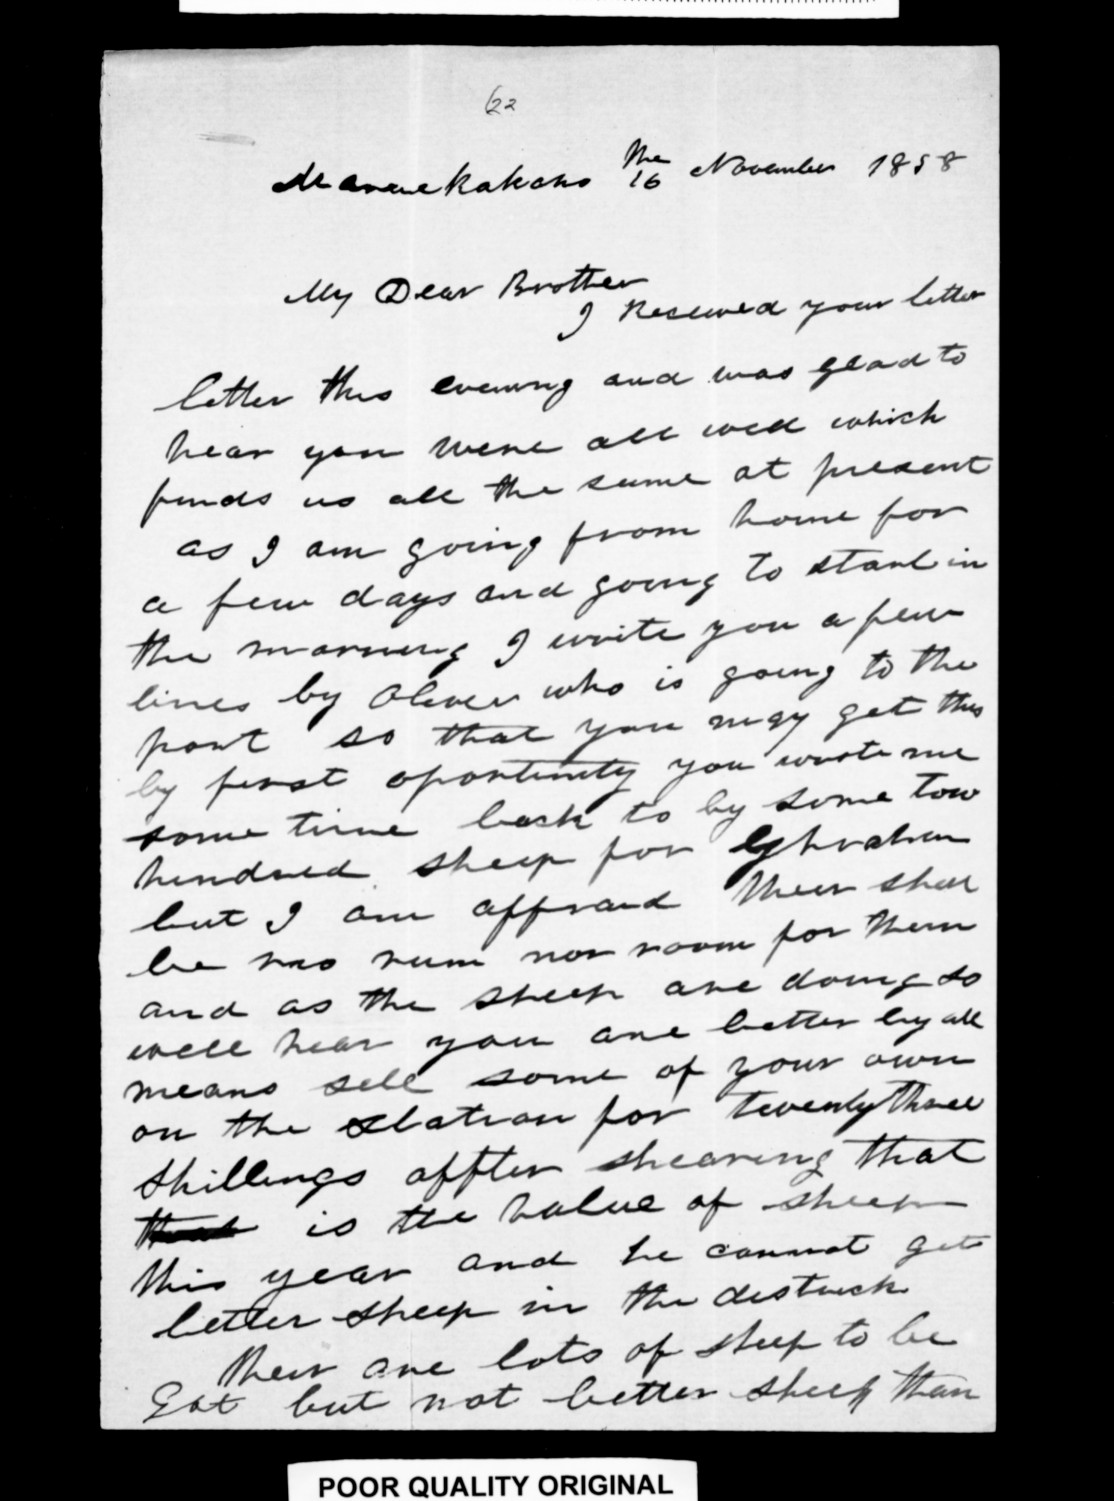 622
Maraekakaho the 16 November 1858
My Dear Brother
I Receved your letter
letter this evening and was glad to
hear you were all well which
finds us all the same at present
as I am going from home for
a few days and going to start in
the morning I write you a few
lines by Oliver who is going to the
port so that you may get this
by first oportunity you wrote me
some time back to by some tow
hundred sheep for
but I am affraid their shall
be no rum nor room for them
and as the sheep are doing so
well hear you are better by all
means sell some of your own
on the station for twenty three
shillings affter shearing that
that is the value of sheep
this year and he cannot get
better sheep in the districk
their are lots of sheep to be
Got but not better sheep than
POOR QUALITY ORIGINAL